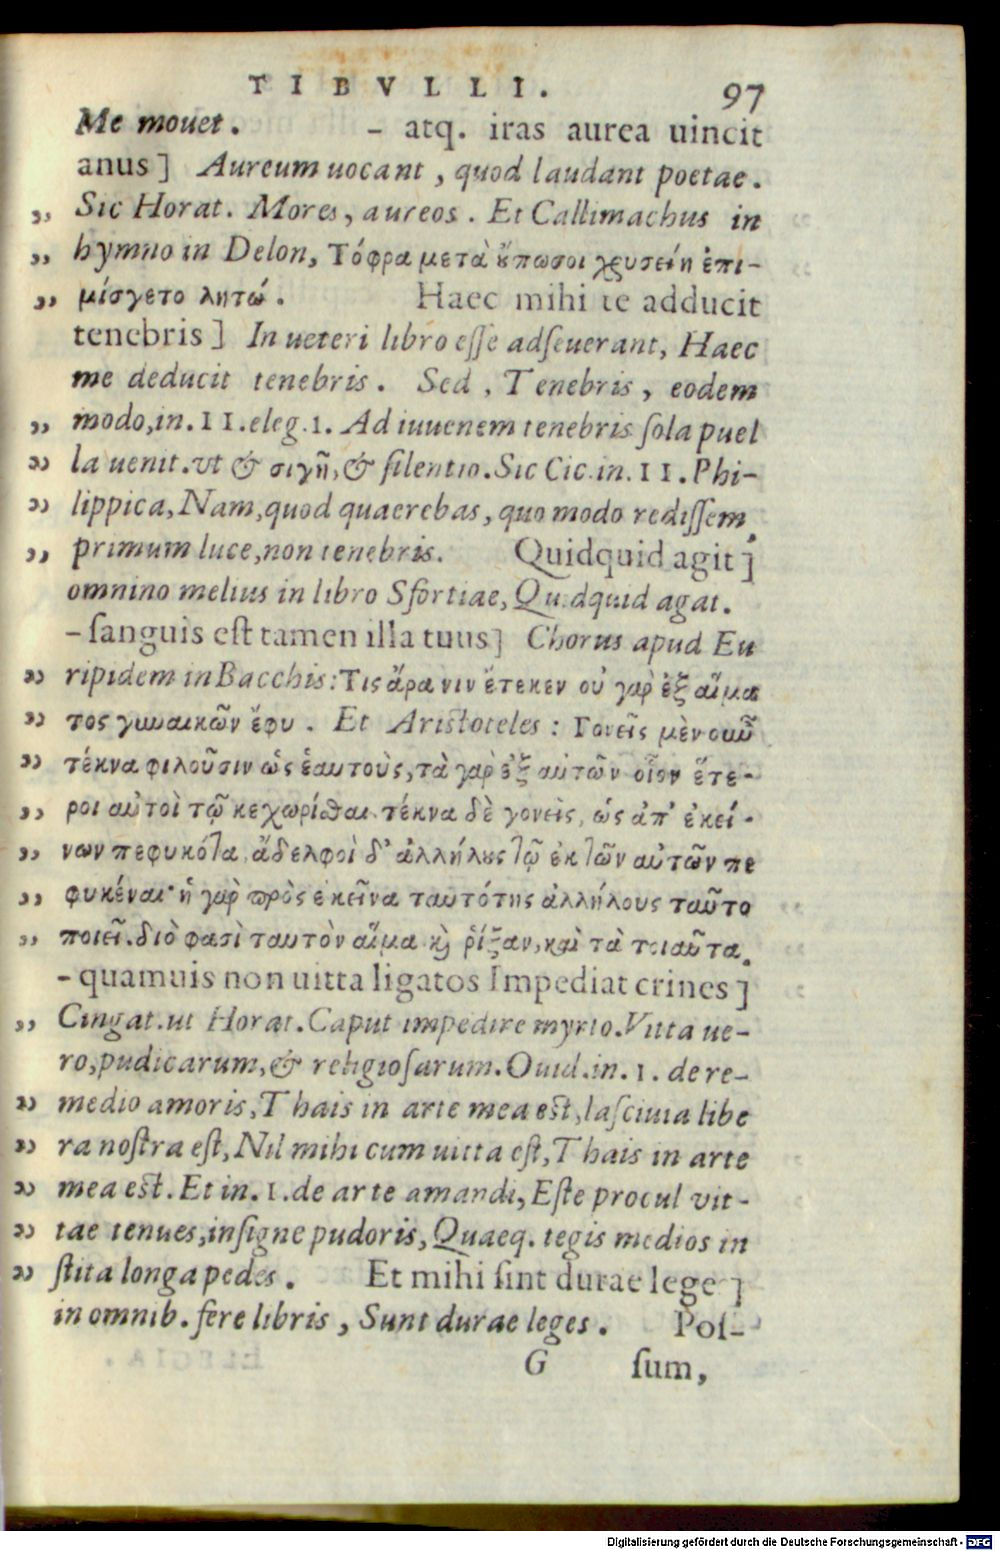 TIBVLLI. 97
Me mouet. – atq. iras aurea uincit
anus] Aureum uocant, quod laudant poetae.
,, Sic Horat. Mores, aureos. Et Callimachus in
,, hymno in Delon, Τόφρα μετὰ ȣ̓́πωσοι χρυσείη ἐπι-
,, μίσγετο λητώ. Haec mihi te adducit
tenebris] In ueteri libro esse adseuerant, Haec
me deducit tenebris. Sed, Tenebris, eodem
,, modo, in. II. eleg. 1. Ad iuuenem tenebris sola puel
,, la uenit. vt & σιγῆ, & silentio. Sic Cic. in. II. Phi-
,, lippica, Nam, quod quaerebas, quo modo redissem,
,, primum luce, non tenebris. Quidquid agit]
omnino melius in libro Sfortiae, Quidquid agat.
– sanguis est tamen illa tuus] Chorus apud Eu
,, ripidem in Bacchis: Τις ἄρα νιν ἔτεκεν οὐ γαρ ἐξ αἵμα
,, τος γυναικῶν ἔφυ. Et Aristoteles: Γονεῖς μὲν οὖν
,, τέκνα φιλοῦσιν ὡς ἑαυτοὺς, τὰ γαρ ἐξ αὐτῶν οἷον ἕτε-
,, ροι αὐτοὶ τῷ κεχωρίσθαι. τέκνα δὲ γονεῖς, ὡς ἀπ' ἐκεί-
,, νων πεφυκότα. ἄδελφοὶ δ' ἀλλήλȣς τῷ ἐκ τῶν αὐτῶν πε
,, φυκέναι· ἡ γαρ πρὸς ἐκεῖνα ταυτότης ἀλλήλους ταῦτο
,, ποιεῖ. διὸ φασὶ ταυτὸν αἷμα ϗ ῥίζαν, καὶ τὰ τοιαῦτα.
– quamuis non uitta ligatos Impediat crines]
,, Cingat. ut Horat. Caput impedire myrto. Vitta ue-
ro, pudicarum, & religiosarum. Ouid. in. 1. de re-
,, medio amoris, Thais in arte mea est, lasciuia libe
,, ra nostra est, Nil mihi cum uitta est, Thais in arte
,, mea est. Et in. 1. de arte amandi, Este procul vit-
,, tae tenues, insigne pudoris, Quaeq. tegis medios in
,, stita longa pedes. Et mihi sint durae lege]
in omnib. fere libris, Sunt durae leges. Pos-
G sum,
Digitalisierung gefördert durch die Deutsche Forschungsgemeinschaft - DFG